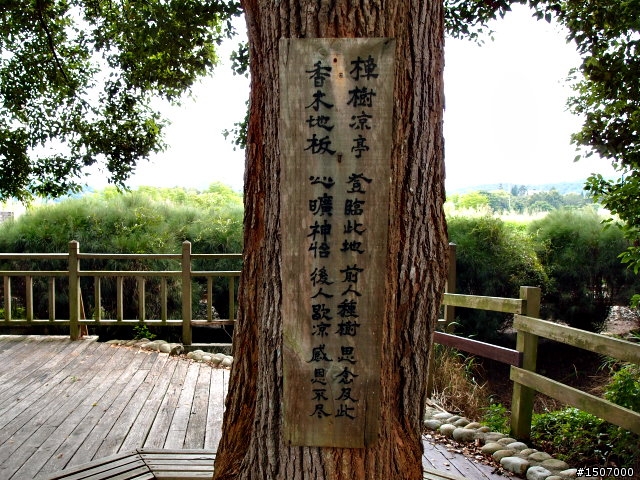 樟樹凉亭 登臨此地 前人種樹 思念及此
香木地板 心曠神怡 後人歇凉 感恩不尽
#1507000